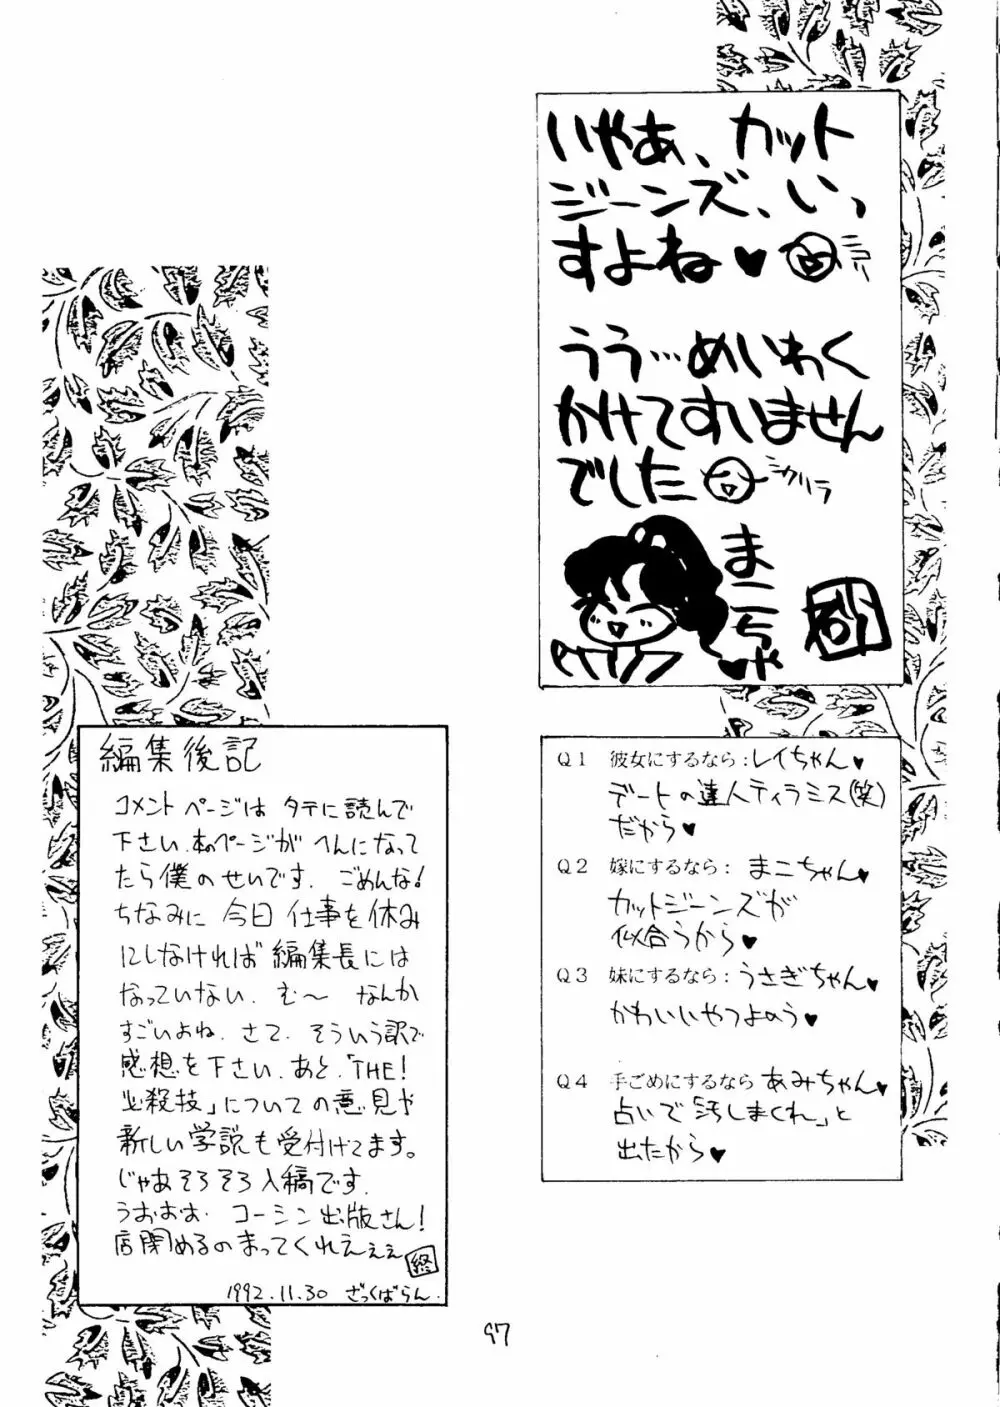 いやあ、カット
ジーンズ、いっ
すよね♥
うう…めいわく
かけてすいません
でした
まこちゃ
Q1 彼女にするなら：レイちゃん♥
デートの達人ティラミス(笑)
だから♥
Q2 嫁にするなら：まこちゃん♥
カットジーンズが
似合うから♥
Q3 妹にするなら：うさぎちゃん♥
かわいいやつよのう♥
Q4 手ごめにするなら あみちゃん♥
占いで「汚しまくれ」と
出たから♥
編集後記
コメントページは タテに読んで
下さい.本のページが へんになって
たら僕のせいです. ごめんな!
ちなみに 今日 仕事を休み
にしなければ 編集長には
なっていない. む〜 なんか
すごいよね. さて. そういう訳で
感想を下さい. あと.「THE!
必殺技」についての意見や
新しい学説も受付けてます。
じゃあそろそろ入稿です.
うおおお. コーシン出版さん!
店閉めるのまってくれえぇぇ 終
1992.11.30 ざっくばらん.
97